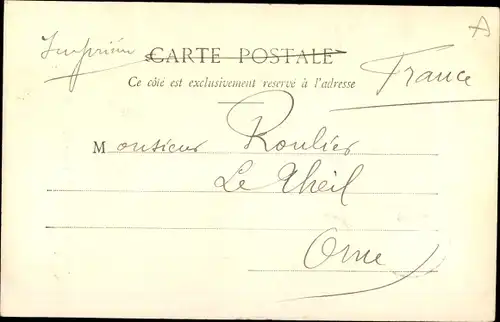 Imprimé
CARTE POSTALE
Ce côté est exclusivement reservé à l'adresse
France
Monsieur Roulier
Le Theil
Orne
A